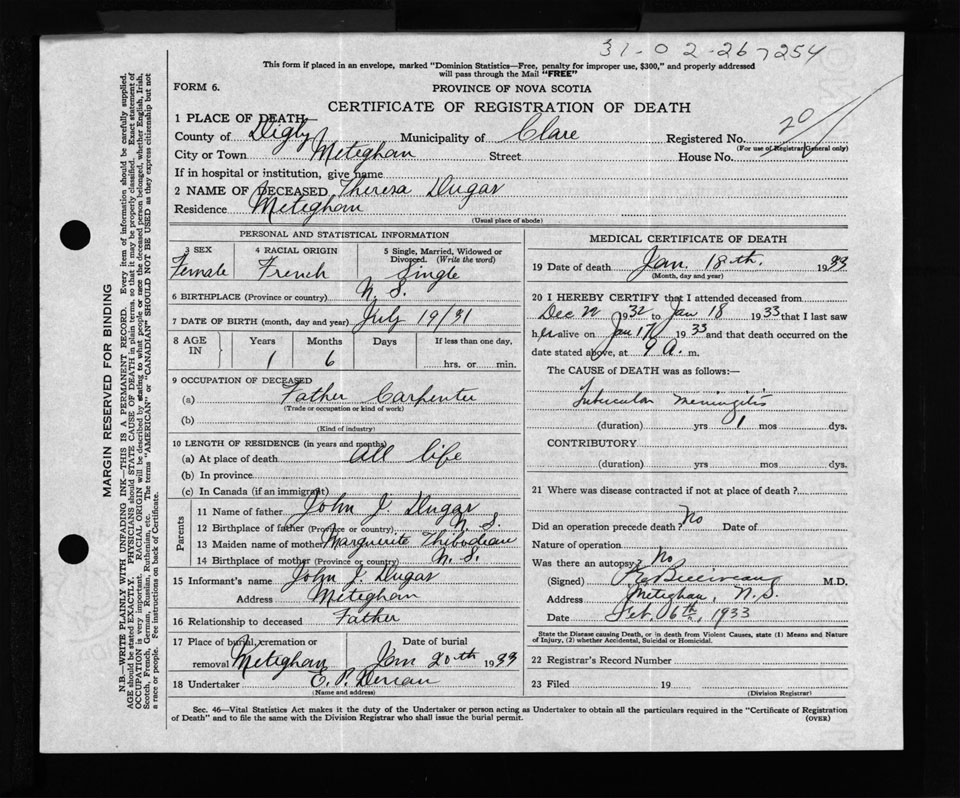 31-02-26 7254
This form if placed in an envelope, marked "Dominion Statistics—Free, penalty for improper use, $300," and properly addressed
will pass through the Mail "FREE"
FORM 6.
PROVINCE OF NOVA SCOTIA
CERTIFICATE OF REGISTRATION OF DEATH
1 PLACE OF DEATH
County of Digby Municipality of Clare Registered No. 20
(For use of Registrar General only)
City or Town Meteghan Street House No.
If in hospital or institution, give name
2 NAME OF DECEASED Theresa Dugas
Residence Meteghan
(Usual place of abode)
PERSONAL AND STATISTICAL INFORMATION
3 SEX 4 RACIAL ORIGIN 5 Single, Married, Widowed or
Divorced. (Write the word)
Female French Single
6 BIRTHPLACE (Province or country) N. S.
7 DATE OF BIRTH (month, day and year) July 19/31
8 AGE IN Years Months Days If less than one day.
1 6 hrs. or min.
9 OCCUPATION OF DECEASED
(a) Father Carpenter
(Trade or occupation or kind of work)
(b)
(Kind of industry)
10 LENGTH OF RESIDENCE (in years and months)
(a) At place of death All life
(b) In province
(c) In Canada (if an immigrant)
Parents
11 Name of father John J. Dugas
12 Birthplace of father (Province or country) N. S.
13 Maiden name of mother Marguerite Thibodeau
14 Birthplace of mother (Province or country) N. S.
15 Informant's name John J. Dugas
Address Meteghan
16 Relationship to deceased Father
17 Place of burial, cremation or Date of burial
removal Meteghan Jan 20th 1933
18 Undertaker E. P. Deveau
(Name and address)
MEDICAL CERTIFICATE OF DEATH
19 Date of death Jan. 18th. 1933
(Month, day and year)
20 I HEREBY CERTIFY that I attended deceased from
Dec 22 1932 to Jan 18 1933 that I last saw
her alive on Jan 17 1933 and that death occurred on the
date stated above, at 9 A. m.
The CAUSE of DEATH was as follows:—
Tubercular meningitis
(duration) yrs 1 mos dys.
CONTRIBUTORY
(duration) yrs mos dys.
21 Where was disease contracted if not at place of death?
Did an operation precede death? No Date of
Nature of operation
Was there an autopsy? No
(Signed) M.D.
Address Meteghan, N.S.
Date Feb. 6th, 1933
State the Disease causing Death, or in death from Violent Causes, state (1) Means and Nature
of Injury, (2) whether Accidental, Suicidal or Homicidal.
22 Registrar's Record Number
23 Filed 19
(Division Registrar)
Sec. 46—Vital Statistics Act makes it the duty of the Undertaker or person acting as Undertaker to obtain all the particulars required in the "Certificate of Registration
of Death" and to file the same with the Division Registrar who shall issue the burial permit. (OVER)
MARGIN RESERVED FOR BINDING
N.B.—WRITE PLAINLY WITH UNFADING INK—THIS IS A PERMANENT RECORD. Every item of information should be carefully supplied.
AGE should be stated EXACTLY. PHYSICIANS should STATE CAUSE OF DEATH in plain terms, so that it may be properly classified. Exact statement of
OCCUPATION is very important. RACIAL ORIGIN will be described by stating to what people or race the deceased person belonged, whether English, Irish,
Scotch, French, German, Russian, Ruthenian, etc. The terms "AMERICAN" or "CANADIAN" SHOULD NOT BE USED as they express citizenship but not
a race or people. Fee instructions on back of Certificate.